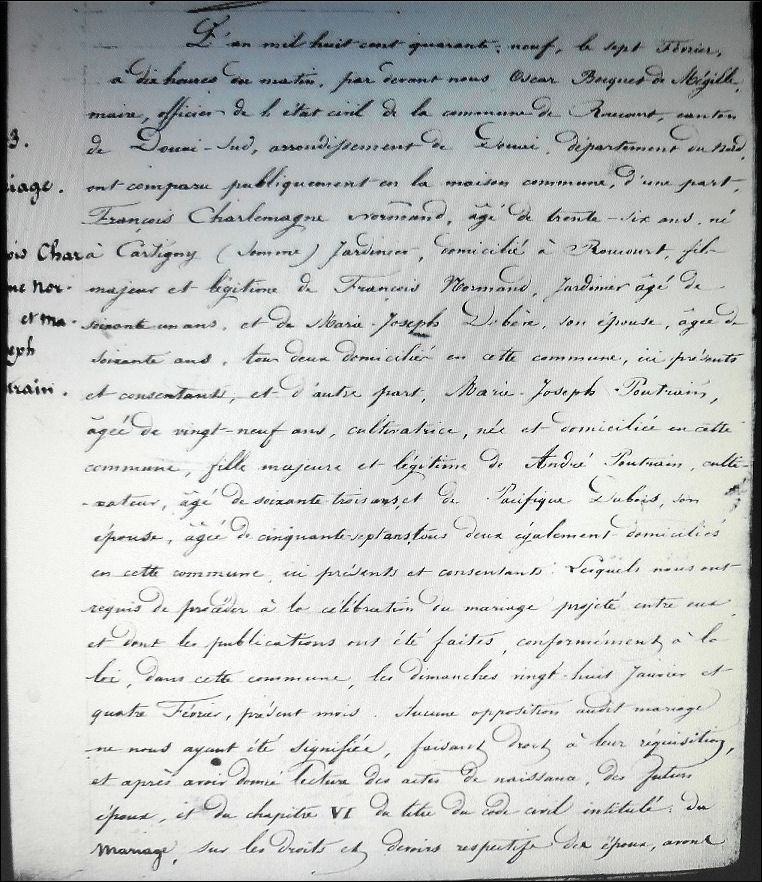 L'an mil huit cent quarante-neuf, le sept Février,
à dix heures du matin, par devant nous Oscar Becquet de Mégille,
maire, officier de l'état civil de la commune de Roucourt, canton
3.
de Douai-Sud, arrondissement de Douai, département du Nord,
iage.
ont comparu publiquement en la maison commune, d'une part,
François Charlemagne Normand, âgé de trente-six ans, né
ois Char
à Cartigny (Somme) Jardinier, domicilié à Roucourt, fils
ne Nor-
majeur et légitime de François Normand, Jardinier âgé de
et Ma-
soixante un ans, et de Marie-Joseph Debève, son épouse, âgée de
eph
soixante ans, tous deux domiciliés en cette commune, ici présents
train.
et consentants, et d'autre part, Marie-Joseph Poutrain,
âgée de vingt-neuf ans, cultivatrice, née et domiciliée en cette
commune, fille majeure et légitime de André Poutrain, culti-
-vateur, âgé de soixante trois ans, et de Pacifique Dubois, son
épouse, âgée de cinquante-sept ans, tous deux également domiciliés
en cette commune, ici présents et consentants. Lesquels nous ont
requis de procéder à la célébration du mariage projeté entre eux
et dont les publications ont été faites, conformément à la
loi, dans cette commune, les dimanches vingt-huit Janvier et
quatre Février, présent mois. Aucune opposition audit mariage
ne nous ayant été signifiée, faisant droit à leur réquisition,
et après avoir donné lecture des actes de naissance, des futurs
époux, et du chapitre VI du titre du code civil intitulé: du
Mariage, sur les droits et devoirs respectifs des époux, avons